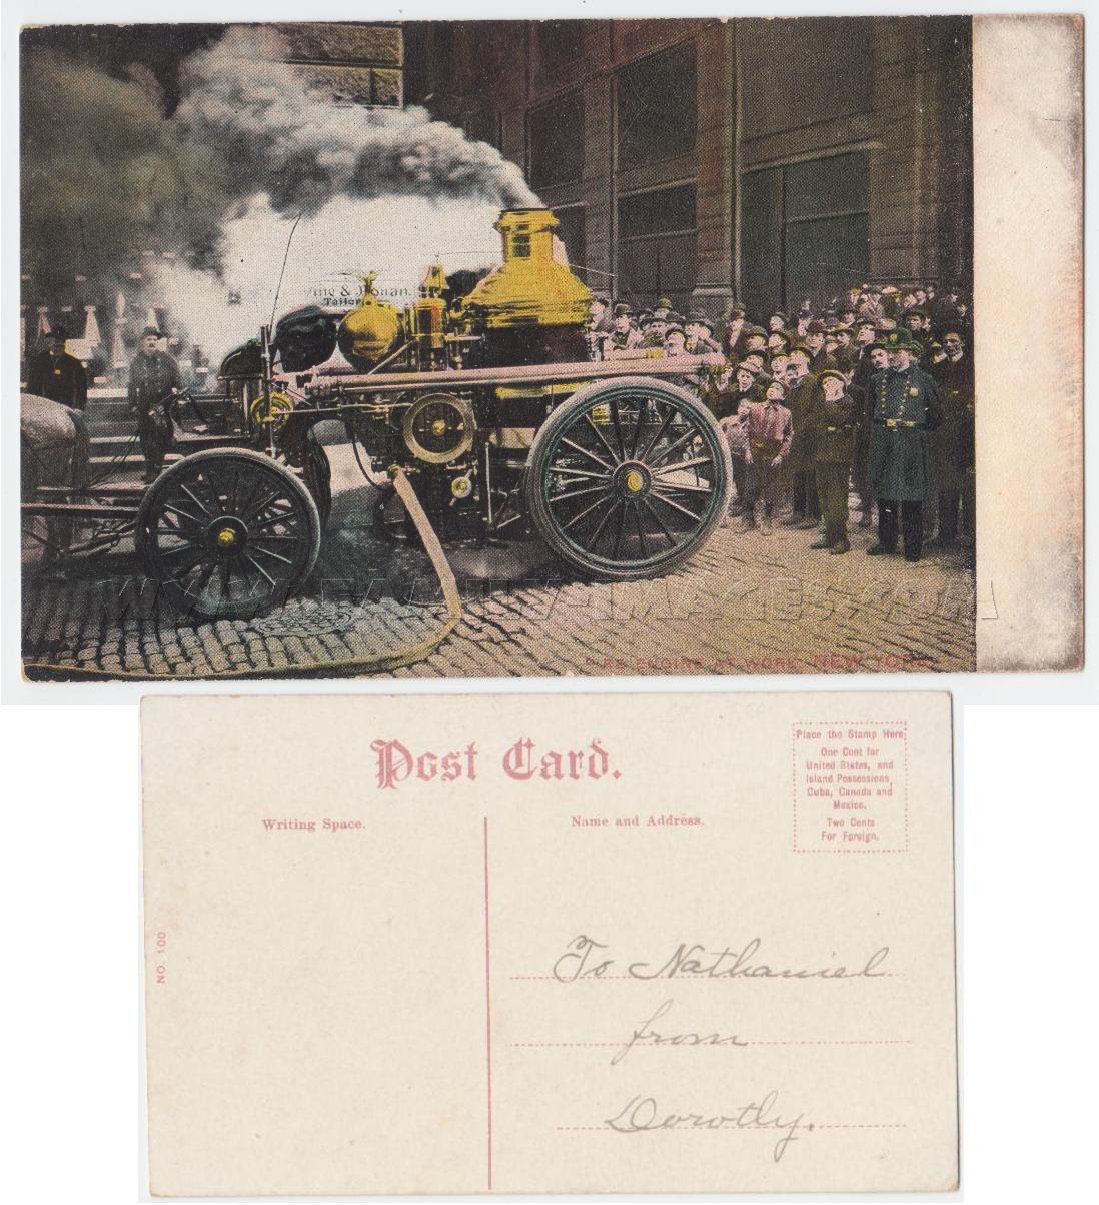 & 
Tailor
FIRE ENGINE AT WORK, NEW YORK.
Post Card.
Place the Stamp Here
One Cent for
United States, and
Island Possessions,
Cuba, Canada and
Mexico.
Two Cents
For Foreign.
Writing Space.
Name and Address.
NO. 100
To Nathaniel
from
Dorothy.